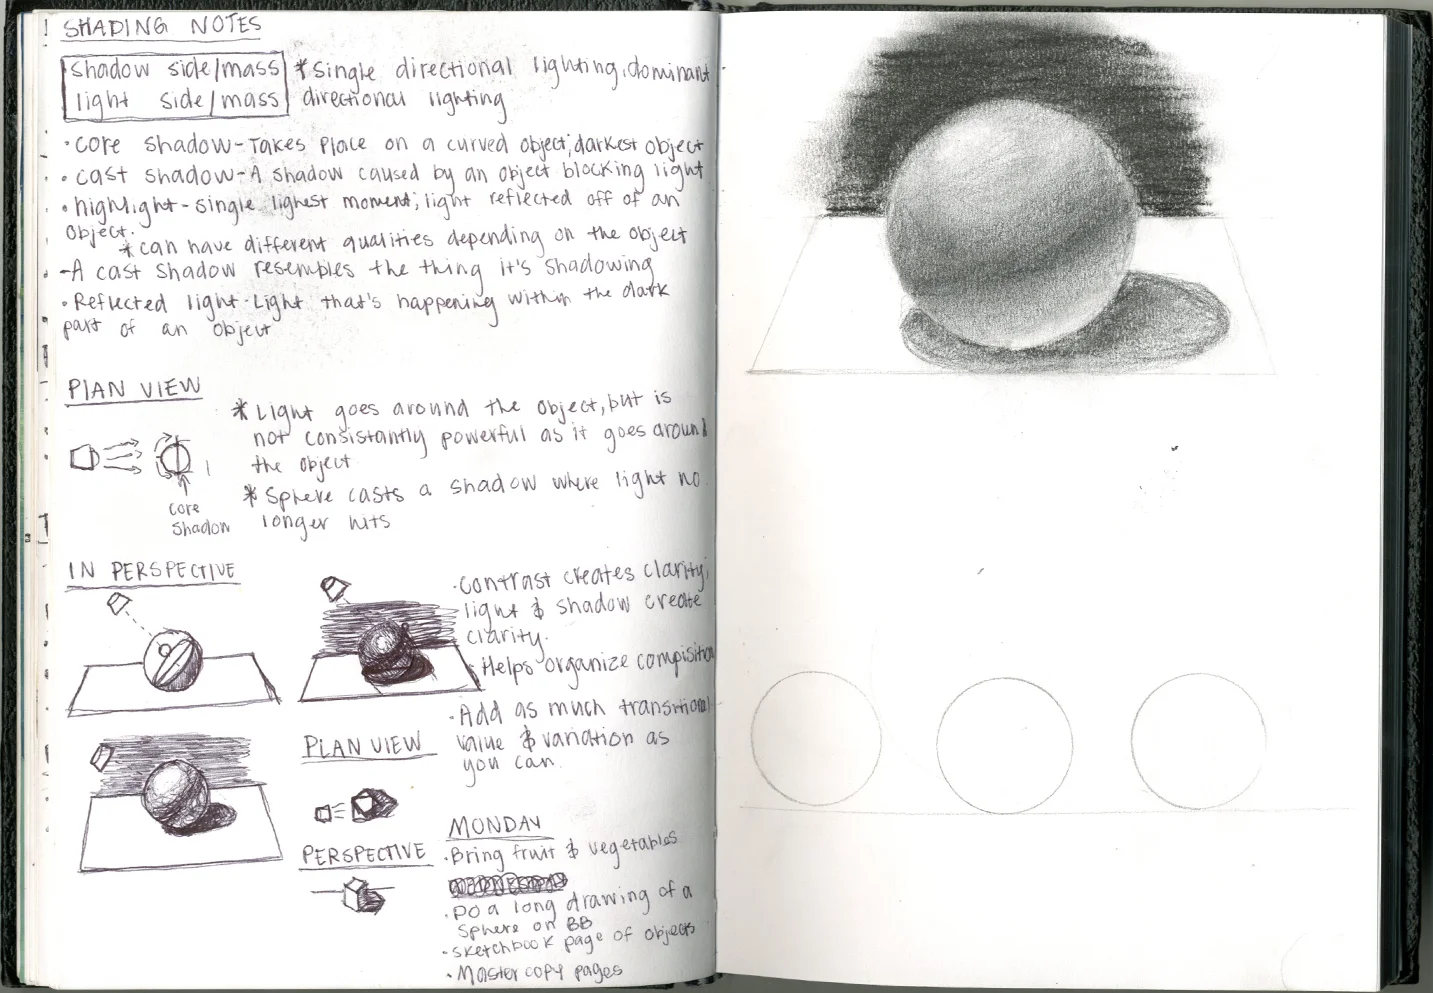 SHADING NOTES
shadow side/mass
light side/mass
*Single directional lighting, dominant
directional lighting
·core shadow-Takes place on a curved object; darkest object
·cast shadow-A shadow caused by an object blocking light
·highlight-single lighest moment; light reflected off of an
object.
*can have different qualities depending on the object
-A cast shadow resembles the thing it's shadowing
·Reflected light-Light that's happening within the dark
part of an object
PLAN VIEW
*Light goes around the object, but is
not consistantly powerful as it goes around
the object
*Sphere casts a shadow where light no
longer hits
core
shadow
IN PERSPECTIVE
·contrast creates clarity,
light & shadow create
clarity.
·Helps organize compisition
·Add as much transitional
value & variation as
you can.
PLAN VIEW
PERSPECTIVE
MONDAY
·Bring fruit & vegetables
·DO a long drawing of a
sphere on BB
·sketchbook page of objects
·Master copy pages